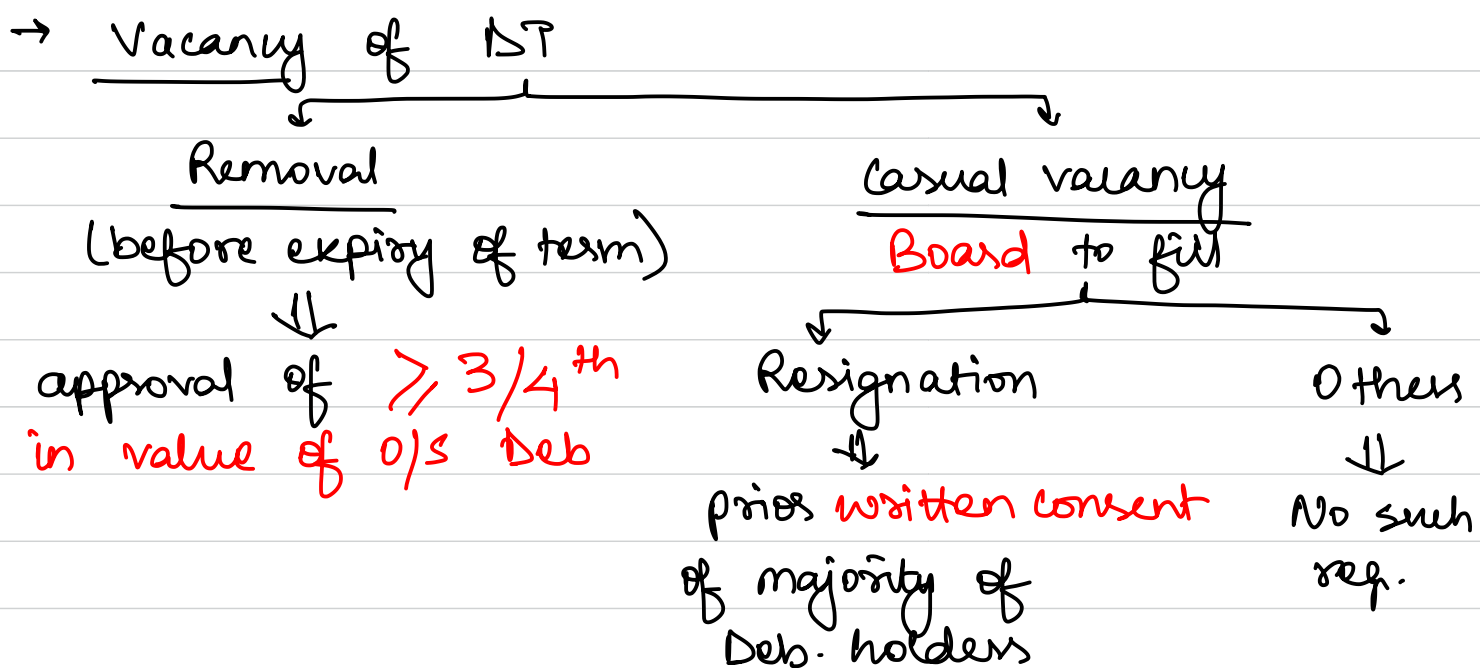 → Vacancy of DT
Removal
(before expiry of term)
⇓
approval of ≥ 3/4th
in value of O/S Deb
Casual vacancy
Board to fill
Resignation
⇓
prior written consent
of majority of
Deb. holders
Others
⇓
No such
req.